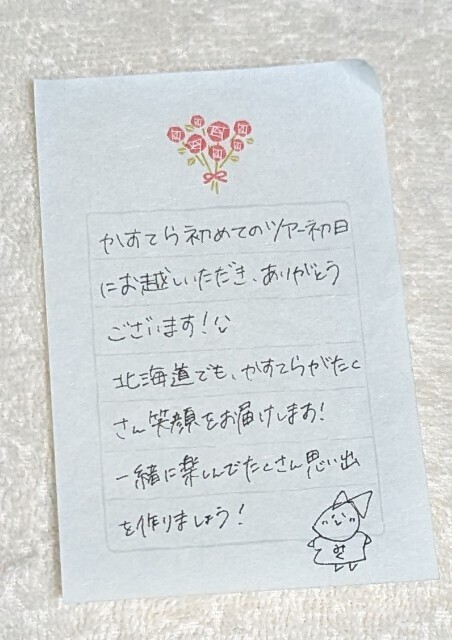 かすてら初めてのツアー初日
にお越しいただき、ありがとう
ございます!
北海道でも、かすてらがたく
さん笑顔をお届けします!
一緒に楽しんでたくさん思い出
を作りましょう!